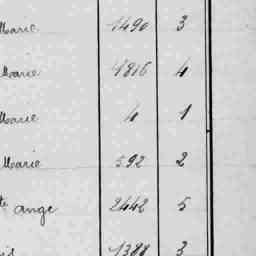 Marie 1490 3
Marie 4816 4
Marie 4 1
Marie 592 2
te ange 2442 5
1388 3